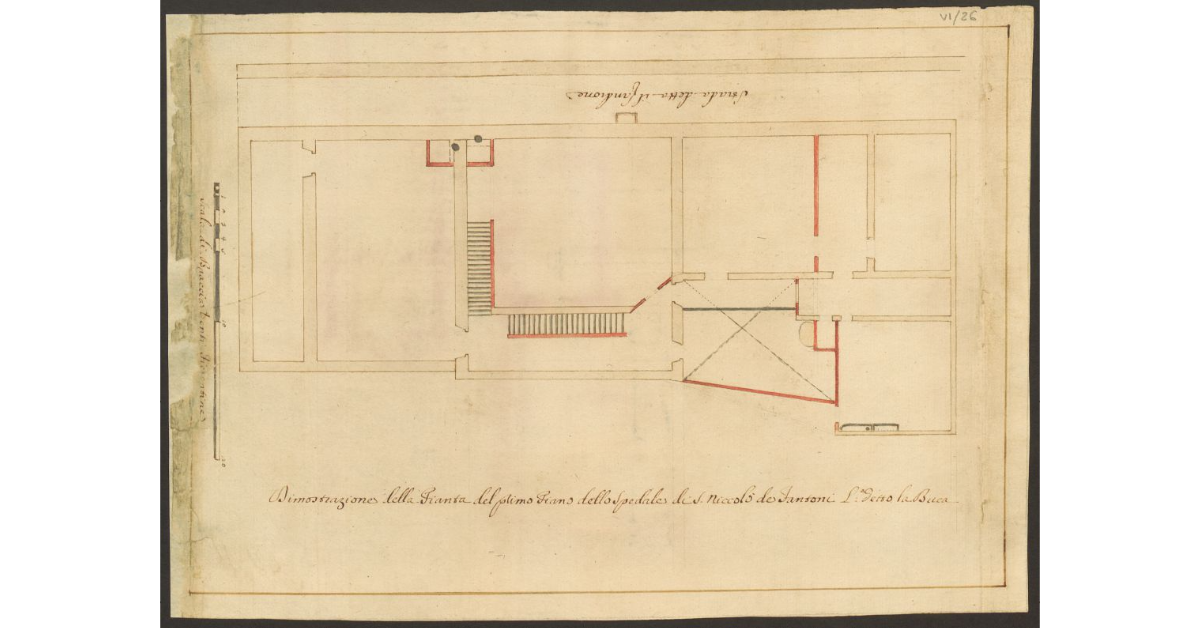 VI/26
Strada detta il Gandione
Scala di Braccia Venti Fiorentine
Dimostrazione della Pianta del primo Piano dello Spedale di S. Niccolò de Fantoni L.º Detto la Buca